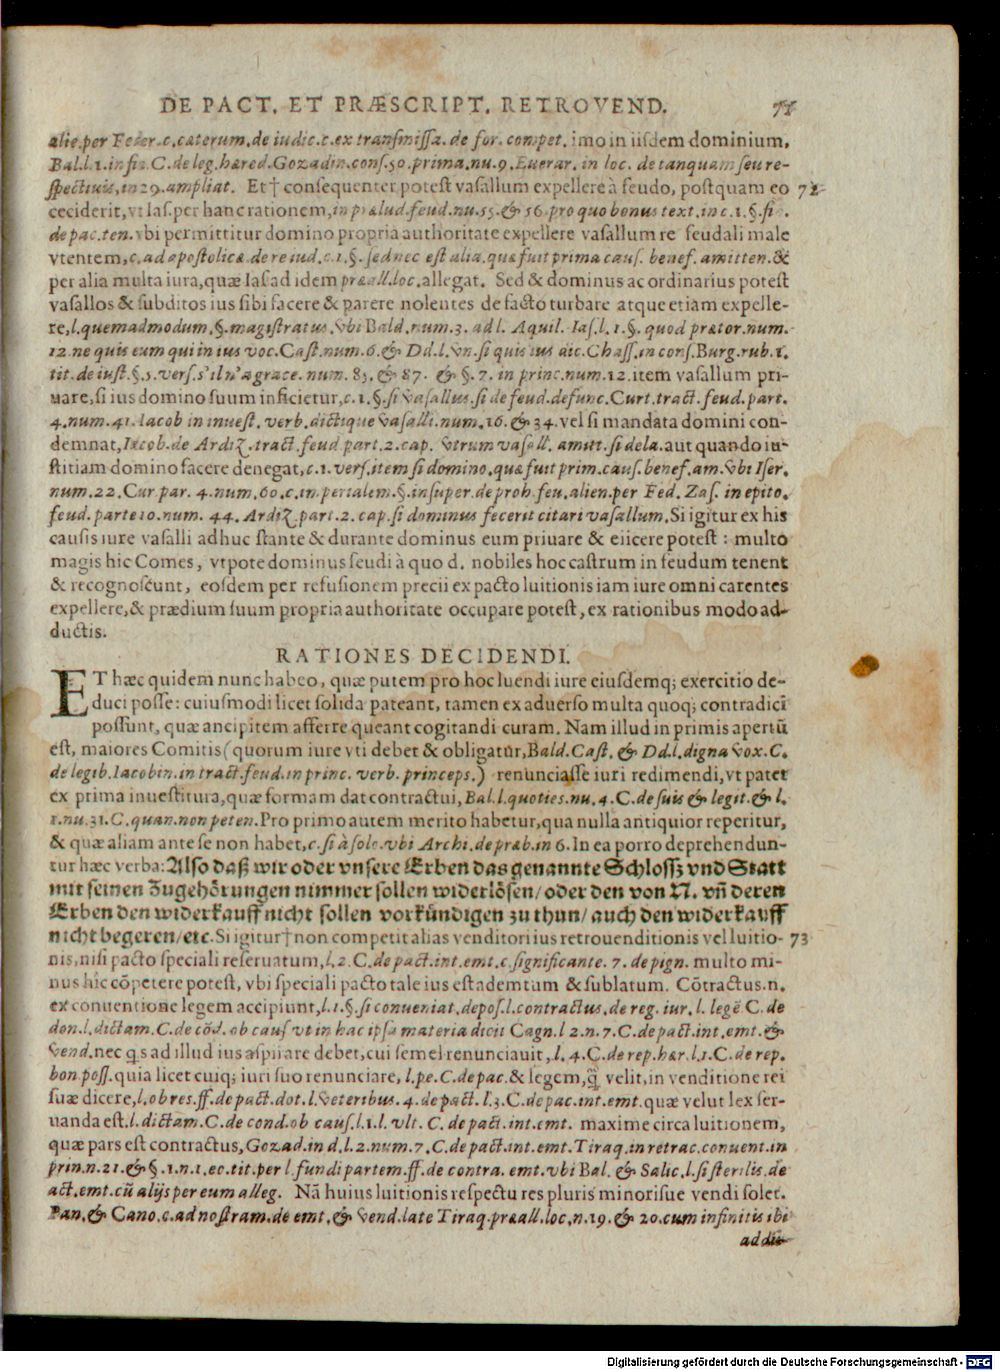 DE PACT. ET PRÆSCRIPT. RETROVEND. 71
alie.per Feder.c.cæterum.de iudic.c.ex transmissa. de for. compet. imo in iisdem dominium,
Bal.l.1.in fin.C.de leg.hæred.Gozadin.cons.50.prima.nu.9.Euerar. in loc. de tanquam seu re-
spectiuis,in 29.ampliat. Et† consequenter potest vasallum expellere à feudo, postquam eo 72
ceciderit,vt Ias.per hanc rationem,in prælud.feud.nu.55.& 56.pro quo bonus text.in c.1.§.si .
de pac.ten.vbi permittitur domino propria authoritate expellere vasallum re feudali male
vtentem,c.ad apostolicæ.de re iud.c.1.§.sed nec est alia.quæ fuit prima caus. benef.amitten.&
per alia multa iura,quæ Ias.ad idem præall.loc.allegat. Sed & dominus ac ordinarius potest
vasallos & subditos ius sibi facere & parere nolentes de facto turbare atque etiam expelle-
re,l.quemadmodum.§.magistratus.vbi Bald.num.3.ad l. Aquil. Ias.l.1.§.quod prætor.num.
12.ne quis eum qui in ius voc.Cast.num.6.& Dd.l.vn.si quis ius dic.Chass.in cons.Burg.rub.1.
tit.de iust.§.5.vers.s'il n'a grace.num.85.& 87. & §.7. in princ.num.12.item vasallum pri-
uare,si ius domino suum inficietur,c.1.§.si vasallus.si de feud.defunc.Curt.tract.feud.part.
4.num.41.Iacob in inuest. verb.dictique vasalli.num.16.& 34.vel si mandata domini con-
demnat,Iacob.de Ardiz.tract.feud part.2.cap. vtrum vasall. amitt.si dela.aut quando iu-
stitiam domino facere denegat,c.1.vers.item si domino.quæ fuit prim.caus.benef.am.vbi Iser.
num.22.Cur par. 4.num.60.c.imperialem.§.insuper.de proh.feu.alien.per Fed. Zas. in epito.
feud.parte 10.num. 44.Ardiz.part.2.cap.si dominus fecerit citari vasallum.Si igitur ex his
causis iure vasalli adhuc stante & durante dominus eum priuare & eiicere potest : multo
magis hic Comes, vtpote dominus feudi à quo d. nobiles hoc castrum in feudum tenent
& recognoscunt, eosdem per refusionem precii ex pacto luitionis iam iure omni carentes
expellere,& prædium suum propria authoritate occupare potest, ex rationibus modo ad-
ductis.
RATIONES DECIDENDI.
ET hæc quidem nunc habeo, quæ putem pro hoc luendi iure eiusdemq; exercitio de-
duci posse: cuiusmodi licet solida pateant, tamen ex aduerso multa quoq; contradici
possunt, quæ ancipitem afferre queant cogitandi curam. Nam illud in primis apertũ
est, maiores Comitis (quorum iure vti debet & obligatur,Bald.Cast. & Dd.l.digna vox.C.
de legib.Iacobin.in tract.feud.in princ. verb.princeps.) renunciasse iuri redimendi,vt patet
ex prima inuestitura,quæ formam dat contractui, Bal.l.quoties.nu.4.C.de suis & legit.& l.
1.nu.31.C.quan.non peten.Pro primo autem merito habetur,qua nulla antiquior reperitur,
& quæ aliam ante se non habet,c.si à sole.vbi Archi.de præb.in 6.In ea porro deprehendun-
tur hæc verba:Also daß wir oder vnsere Erben das genannte Schlossz vnd Statt
mit seinen Zugehörungen nimmer sollen widerlösen/ oder den von N. vñ deren
Erben den widerkauff nicht sollen vorkündigen zu thun/ auch den widerkauff
nicht begeren/etc.Si igitur†non competit alias venditori ius retrouenditionis vel luitio- 73
nis,nisi pacto speciali reseruatum,l.2.C.de pact.int.emt.c.significante.7.de pign. multo mi-
nus hîc cõpetere potest, vbi speciali pacto tale ius est ademtum & sublatum. Cõtractus.n.
ex conuentione legem accipiunt,l.1.§.si conueniat.depos.l.contractus.de reg.iur.l.legẽ C.de
don.l.dictam.C.de cõd.ob caus vt in hac ipsa materia dicit Cagn.l 2.n.7.C.de pact.int.emt.&
vend.nec q̃s ad illud ius aspirare debet,cui semel renunciauit,.l.4.C.de rep.hær.l.1.C.de rep.
bon.poss.quia licet cuiq; iuri suo renunciare, l.pe.C.de pac.& legem,q̃ velit,in venditione rei
suæ dicere,l.ob res.ff.de pact.dot.l.veteribus.4.de pact.l.3.C.de pac.int.emt.quæ velut lex ser-
uanda est.l.dictam.C.de cond.ob caus.l.1.l.vlt. C.de pact.int.emt. maxime circa luitionem,
quæ pars est contractus,Gozad.in d.l.2.num.7.C.de pact.int.emt.Tiraq.in retrac.conuent.in
prin.n.21.& §.1.n.1.eo.tit.per l.fundi partem.ff.de contra. emt.vbi Bal. & Salic.l.si sterilis.de
act.emt.cũ alijs per eum alleg. Nã huius luitionis respectu res pluris minorisue vendi solet.
Pan.& Cano.c.ad nostram.de emt.& vend.late Tiraq.præall.loc.n.19.& 20.cum infinitis ibi
addu-
Digitalisierung gefördert durch die Deutsche Forschungsgemeinschaft - DFG